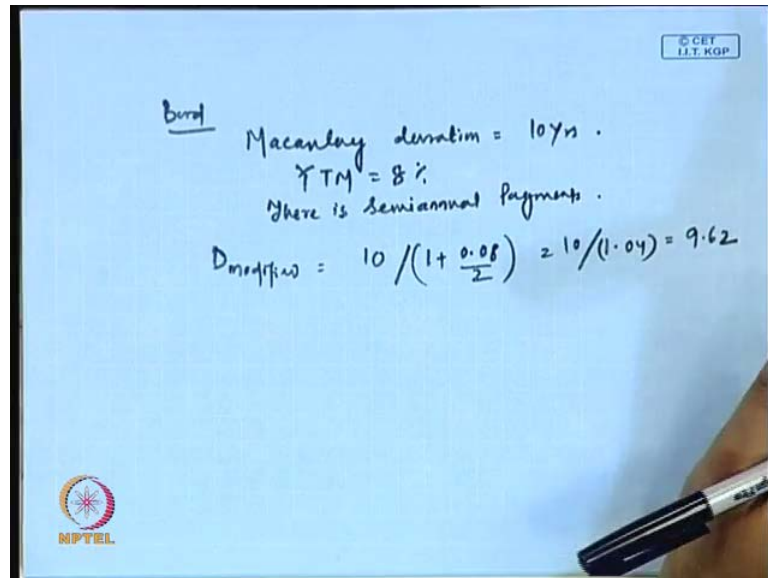 © CET
I.I.T. KGP
Bond
Macaulay duration = 10 Yrs.
YTM = 8%
There is semiannual Payments.
D modified = 10 / (1 + 0.08/2) = 10/(1.04) = 9.62
NPTEL